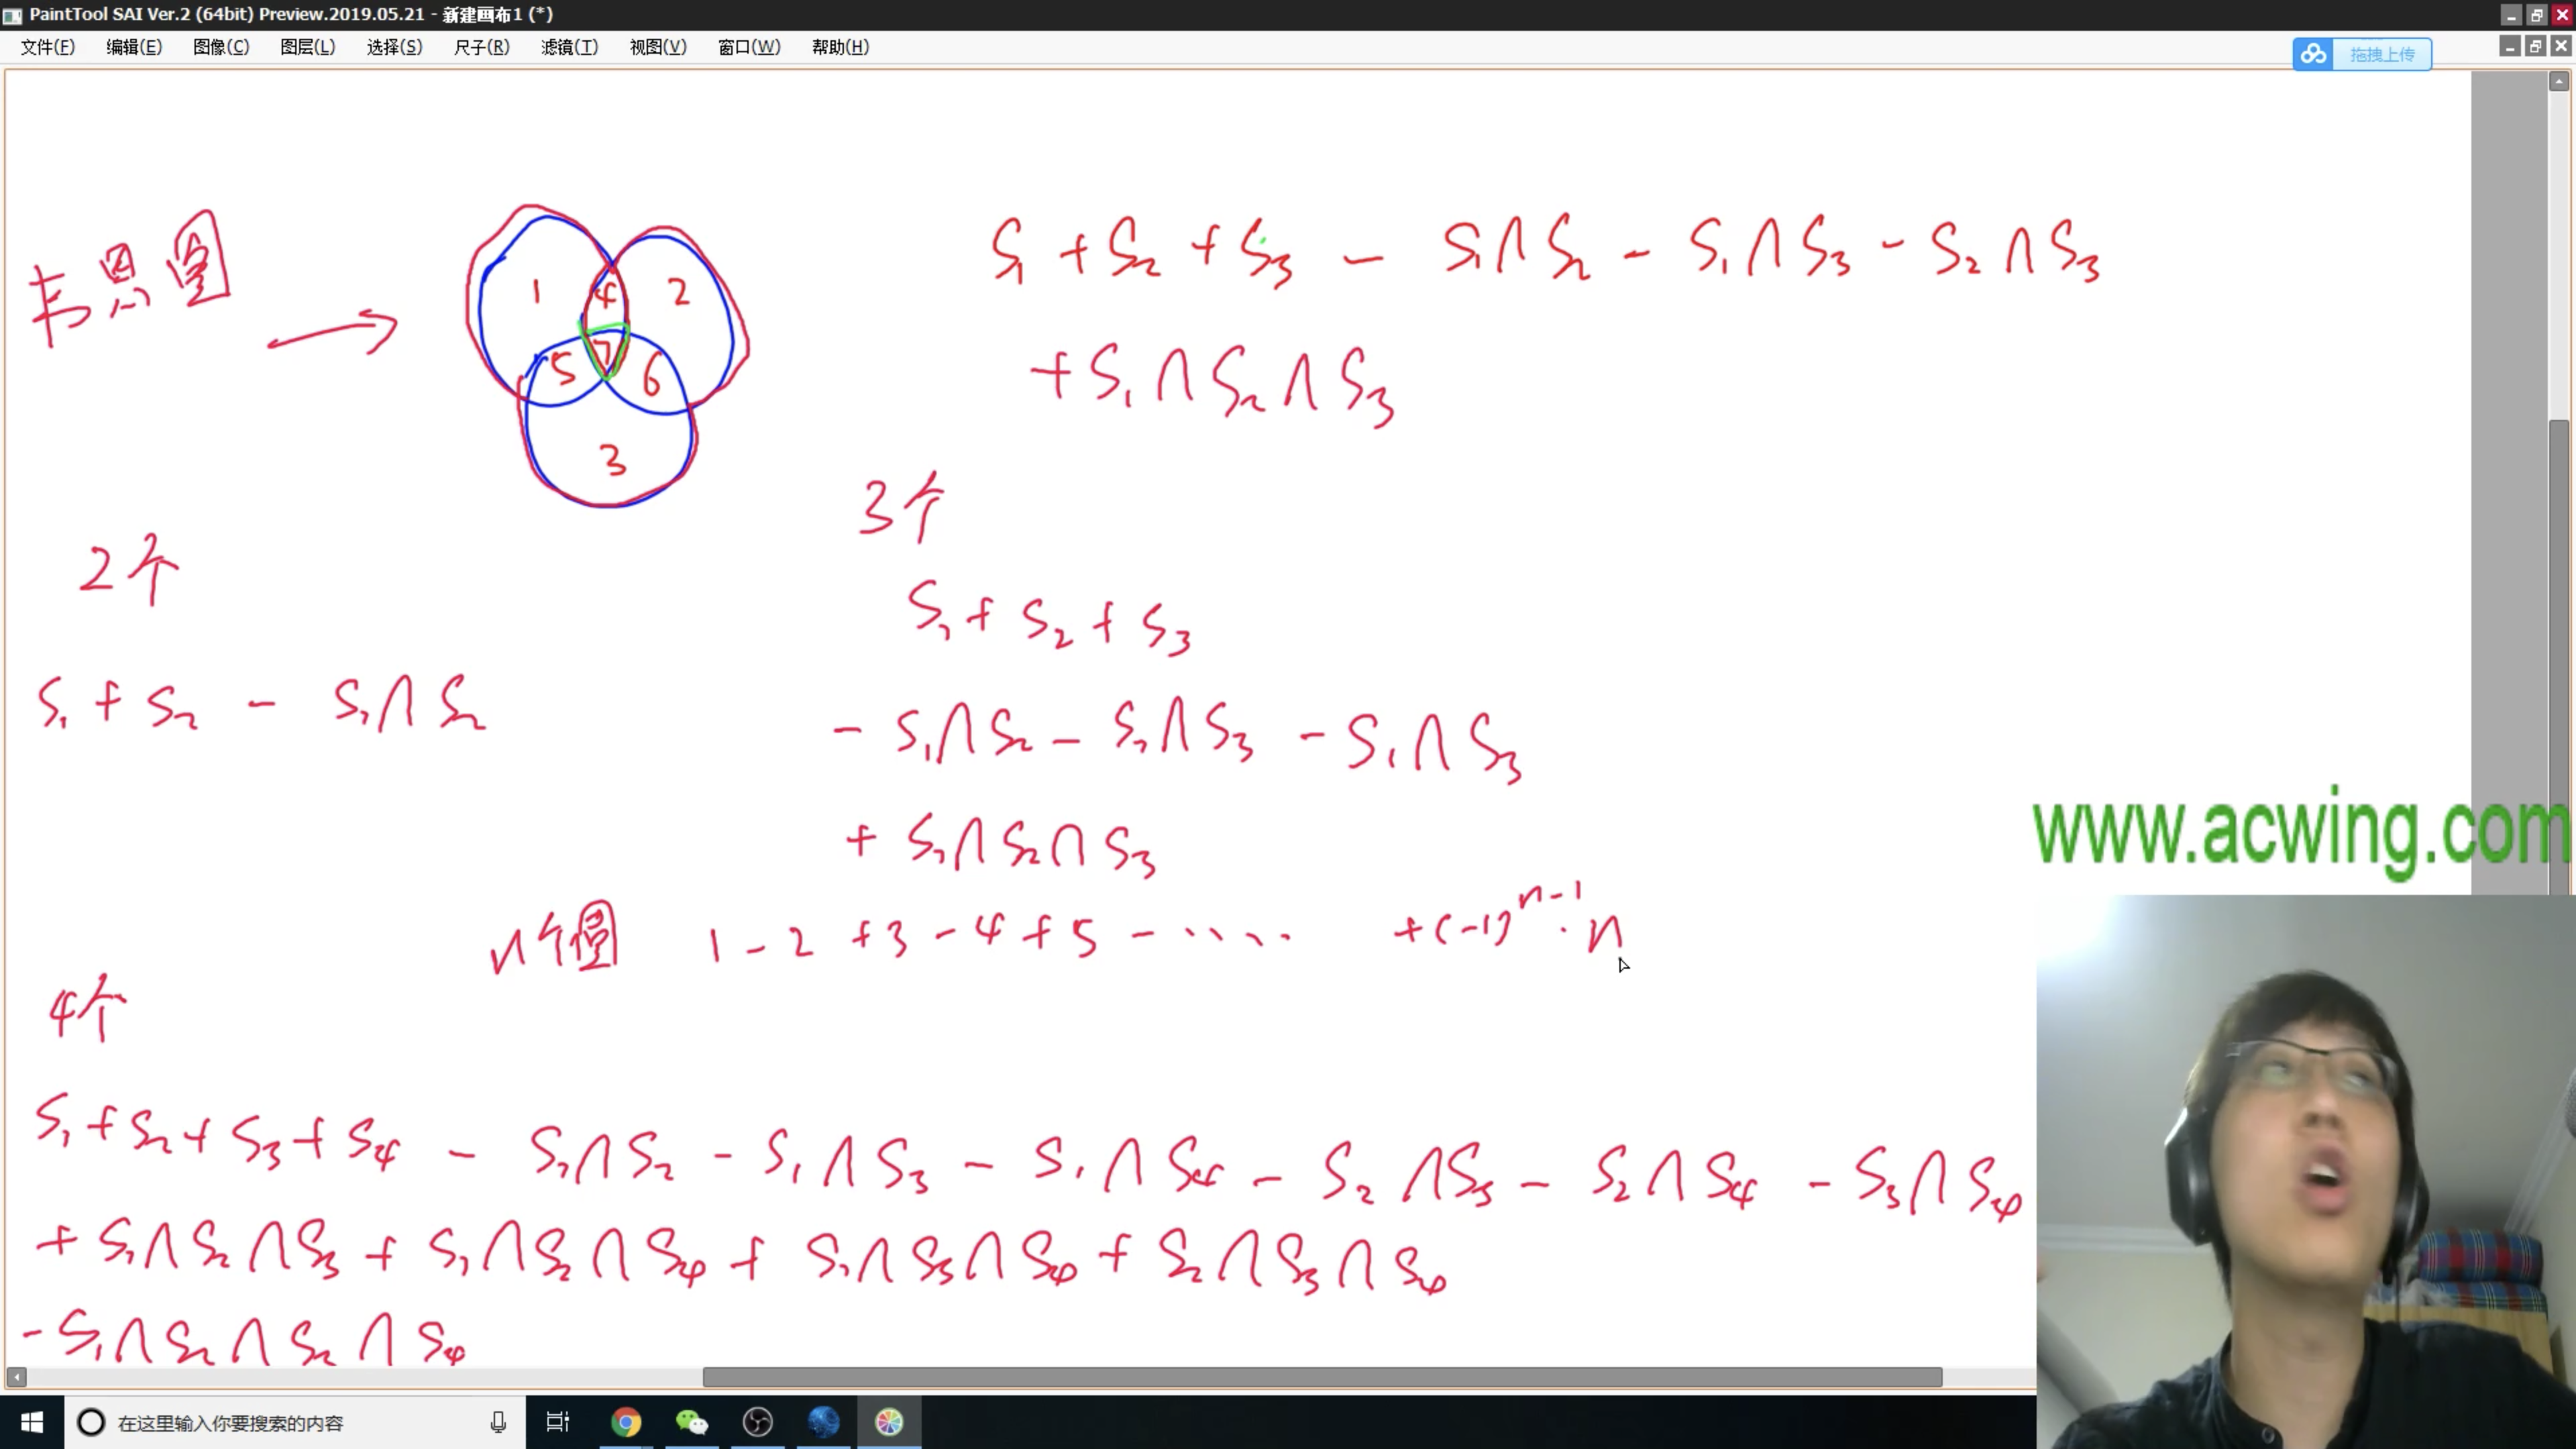 PaintTool SAI Ver.2 (64bit) Preview.2019.05.21 - 新建画布1 (*)
文件(F) 编辑(E) 图像(C) 图层(L) 选择(S) 尺子(R) 滤镜(T) 视图(V) 窗口(W) 帮助(H)
拖拽上传
韦恩图
1 4 2
5 7 6
3
S₁ + S₂ + S₃ - S₁∩S₂ - S₁∩S₃ - S₂∩S₃
+ S₁∩S₂∩S₃
2个
S₁ + S₂ - S₁∩S₂
3个
S₁ + S₂ + S₃
- S₁∩S₂ - S₂∩S₃ - S₁∩S₃
+ S₁∩S₂∩S₃
n个圆 1 - 2 + 3 - 4 + 5 - ····· + (-1)ⁿ⁻¹ · n
4个
S₁ + S₂ + S₃ + S₄ - S₁∩S₂ - S₁∩S₃ - S₁∩S₄ - S₂∩S₃ - S₂∩S₄ - S₃∩S₄
+ S₁∩S₂∩S₃ + S₁∩S₂∩S₄ + S₁∩S₃∩S₄ + S₂∩S₃∩S₄
- S₁∩S₂∩S₂∩S₄
www.acwing.com
在这里输入你要搜索的内容